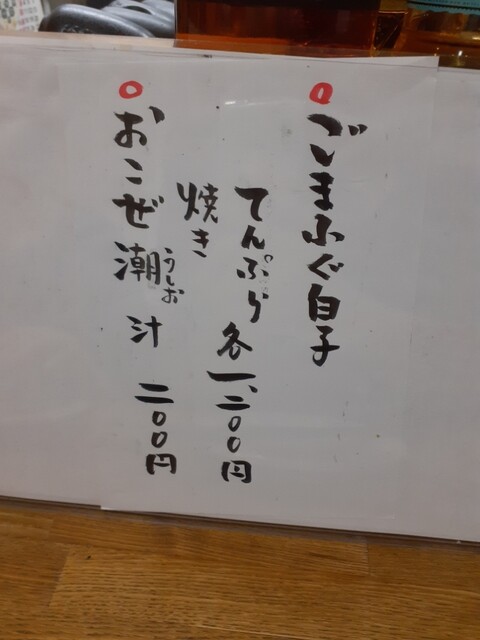 ごまふぐ白子
てんぷら 各一、二〇〇円
焼き
おこぜ潮汁 二〇〇円
うしお